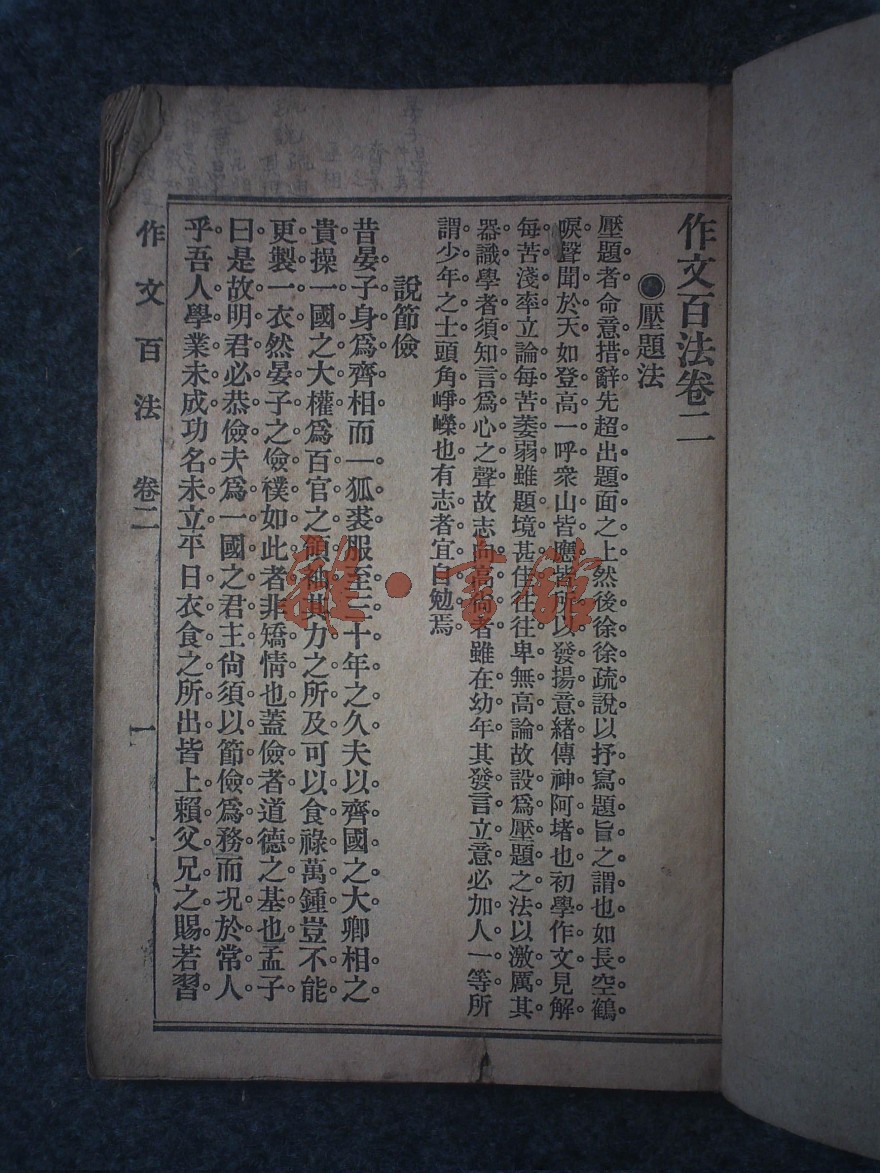 作文百法卷二
●壓題法
壓題者命意措辭先超出題面之上然後徐徐疏說以抒寫題旨之謂也如長空鶴
唳聲聞於天如登高一呼衆山皆應皆所以發揚意緒傳神阿堵也初學作文見解
每苦淺率立論每苦萎弱雖題境甚佳往往卑無高論故設爲壓題之法以激厲其
器識學者須知言爲心之聲故志向高尙者雖在幼年其發言立意必加人一等所
謂少年之士頭角崢嶸也有志者宜自勉焉
說節儉
昔晏子身爲齊相而一狐裘服至三十年之久夫以齊國之大卿相之
貴操一國之大權爲百官之領袖其力之所及可以食祿萬鍾豈不能
更製一衣然晏子之儉樸如此者非矯情也蓋儉者道德之基也孟子
曰是故明君必恭儉夫爲一國之君主尙須以節儉爲務而况於常人
乎吾人學業未成功名未立平日衣食之所出皆上賴父兄之賜若習
作文百法 卷二 一
雜·書館